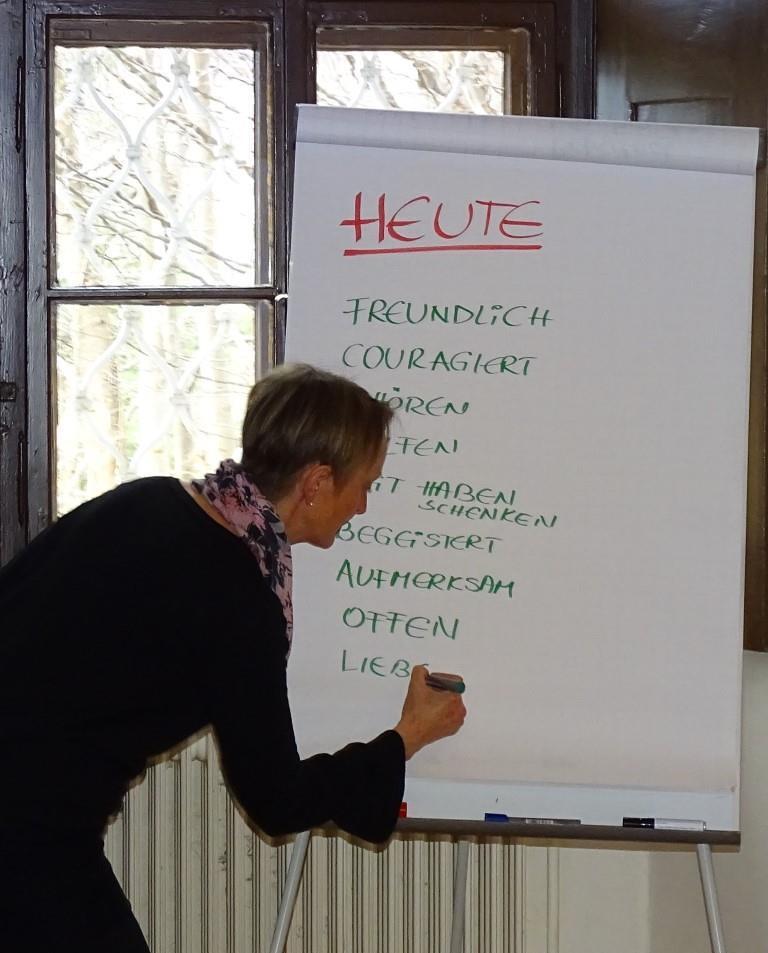 HEUTE
FREUNDLiCH
COURAGIERT
HABEN
SCHENKEN
BEGEiSTERT
AUFMERKSAM
OFFEN